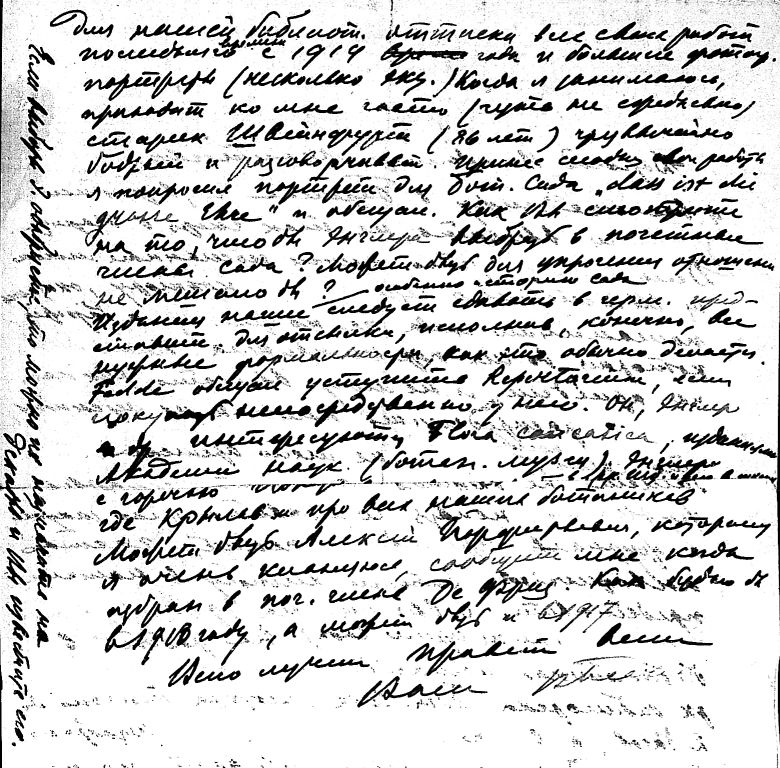 для нашей библиот. оттиски все своих работ
последнего времени с 1914 года и большие фотогр.
портреты (несколько экз.) Когда я занимаюсь,
приходит ко мне часто (чуть не ежедневно)
старик Швейнфурт (86 лет) чрезвычайно
бодрый и разговорчивый. Принес сегодня свои работы
я попросил портрет для Бот. Сада „dass ist die
grosse Ehre" и обещал. Как Вы смотрите
на то, чтобы Энглера выбрать в почетные
члены сада? Может быть для упрочения отношений
не мешало бы? особенно историю сада
Издания наши следует сдавать в герм. пред-
ставит. для отсылки, исполнив, конечно, все
нужные формальности, как это обычно делается.
Fedde обещал уступить Repertorium, если
покупать непосредственно у него. Он, Энглер
и др. интересуются Flora caucasica, издание
Академии наук (ботан. музей) Энглера
с горячо
где Крылов и про всех наших ботаников
Может быть Алексей Порфирьевич, которому
я очень кланяюсь, сообщит мне когда
избран в поч. члены Де Фриз. Как будто бы
в 1918 году, а может быть и в 1917
Всего лучшего привет всем
Ваш
Если выбирать д. открытие, то можно не
и Вы известите его.